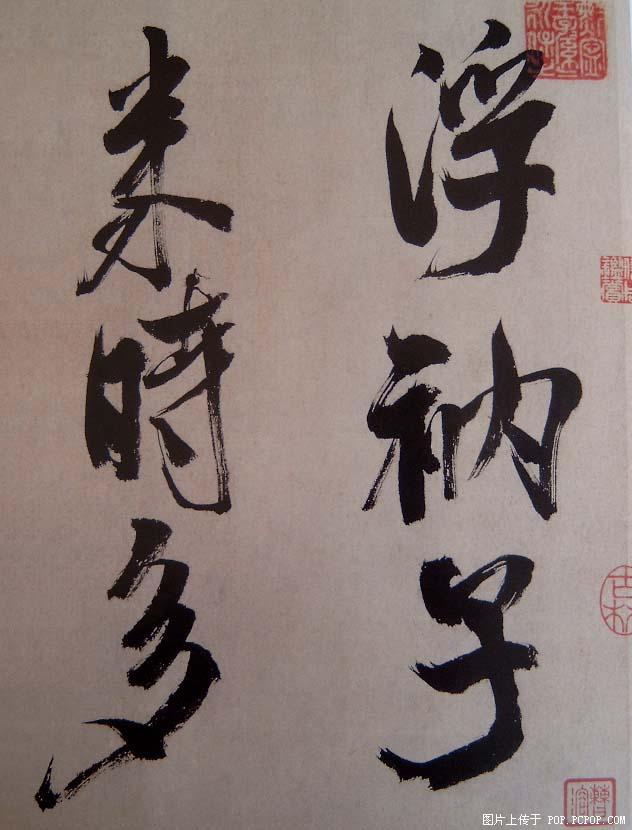 浮衲子
来時多
图片上传于 POP.PCPOP.COM